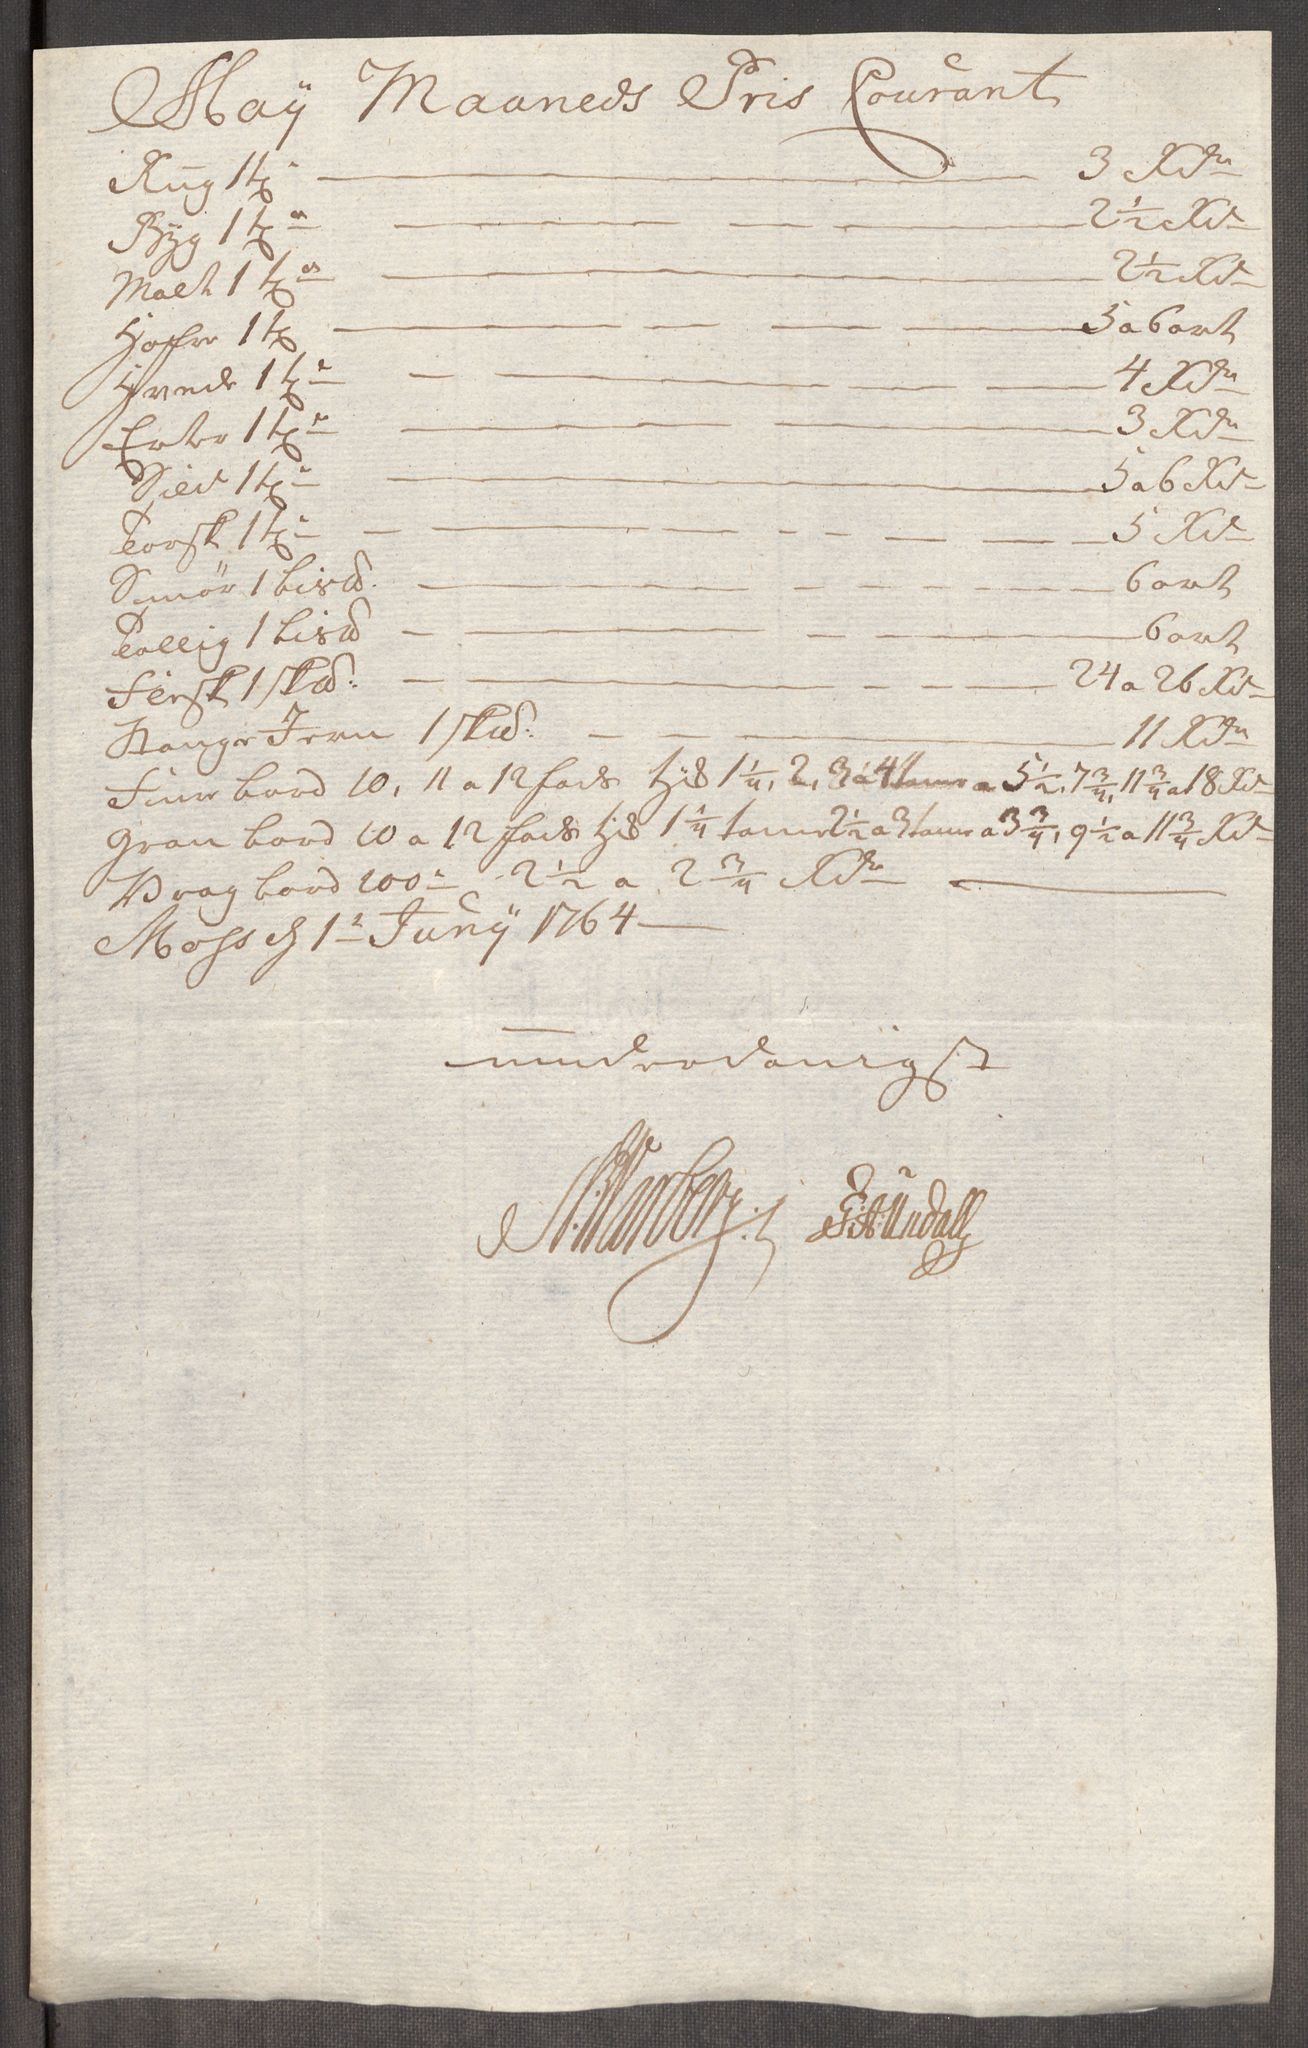 Maÿ Maaneds Pris Courant
Rug 1 tø — 3 Rdr
Byg 1 tøe — 2½ Rd
Malt 1 tøe — 2½ Rd
Hafre 1 tø — 5 a 6 ort
Hvede 1 tøe — 4 Rdr
Erter 1 tøe — 3 Rdr
Sild 1 tøe — 5 a 6 Rd
Torsk 1 tøe — 5 Rd
Smör 1 Lis℔. — 6 ort
Tallig 1 Lis℔ — 6 ort
Fisk 1 sk℔: — 24 a 26 Rd
Stange Jern 1 sk℔: — 11 Rdr
Furre bord 10, 11 a 12 fods tÿk 1¼, 2, 3 a 4 tome a 5½, 7¾, 11¾ a 18 Rd
Gran bord 10 a 12 fods tÿk 1¼ tome 2½ a 3 tome a 3¾, 9½ a 11¾ Rd
Vrag bord 100e 2½ a 2¾ Rdr
Moss d 1e Junÿ 1764
underdanigst